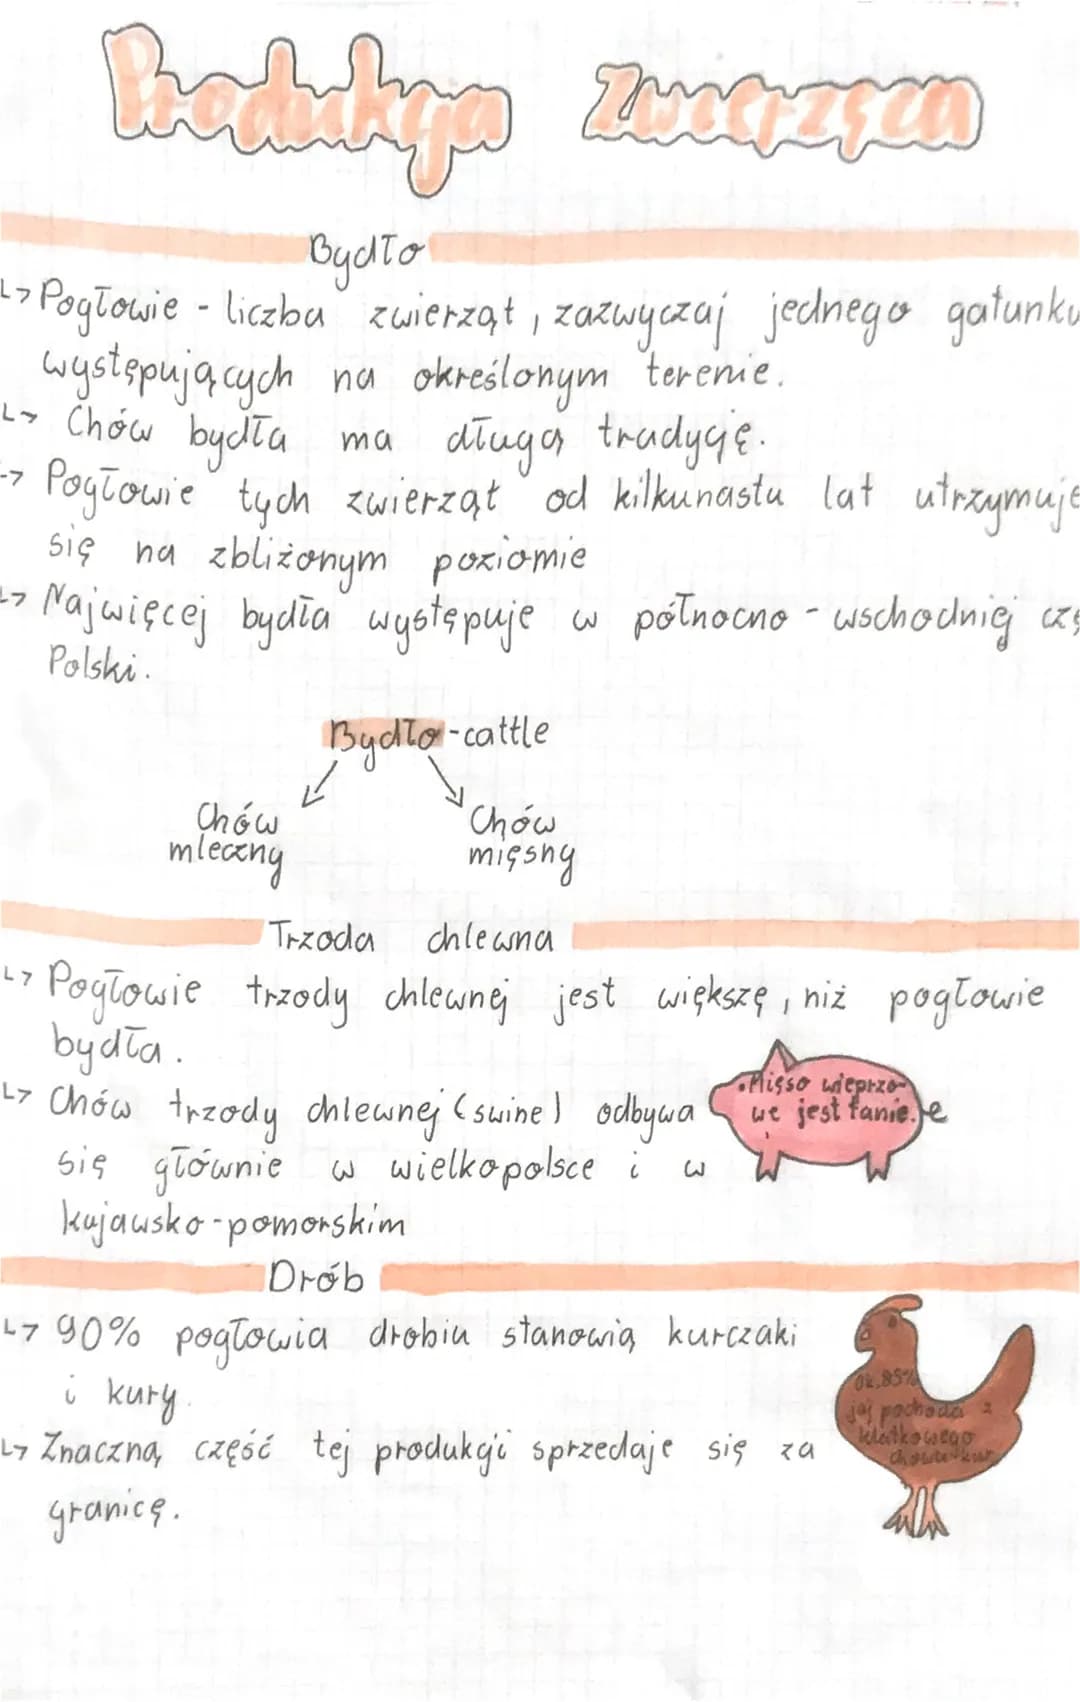 Produkcja Zwierzęca
Bydło
↳ Pogłowie - liczba zwierząt, zazwyczaj jednego gatunku
występujących na określonym terenie.
↳ Chów bydła ma długą tradycję.
↳ Pogłowie tych zwierząt od kilkunastu lat utrzymuje
się na zbliżonym poziomie
↳ Najwięcej bydła występuje w północno - wschodniej czę
Polski.
Bydło - cattle
Chów mleczny
Chów mięsny
Trzoda chlewna
↳ Pogłowie trzody chlewnej jest większę, niż pogłowie
bydła.
↳ Chów trzody chlewnej (swine) odbywa
się głównie w wielkopolsce i w
kujawsko-pomorskim
Mięso wieprzo-
we jest tanie.
Drób
↳ 90% pogłowia drobiu stanowią kurczaki
i kury.
↳ Znaczną część tej produkcji sprzedaje się za
granicę.
Ok. 85%
jaj pochodzi z
klatkowego
chowu kur